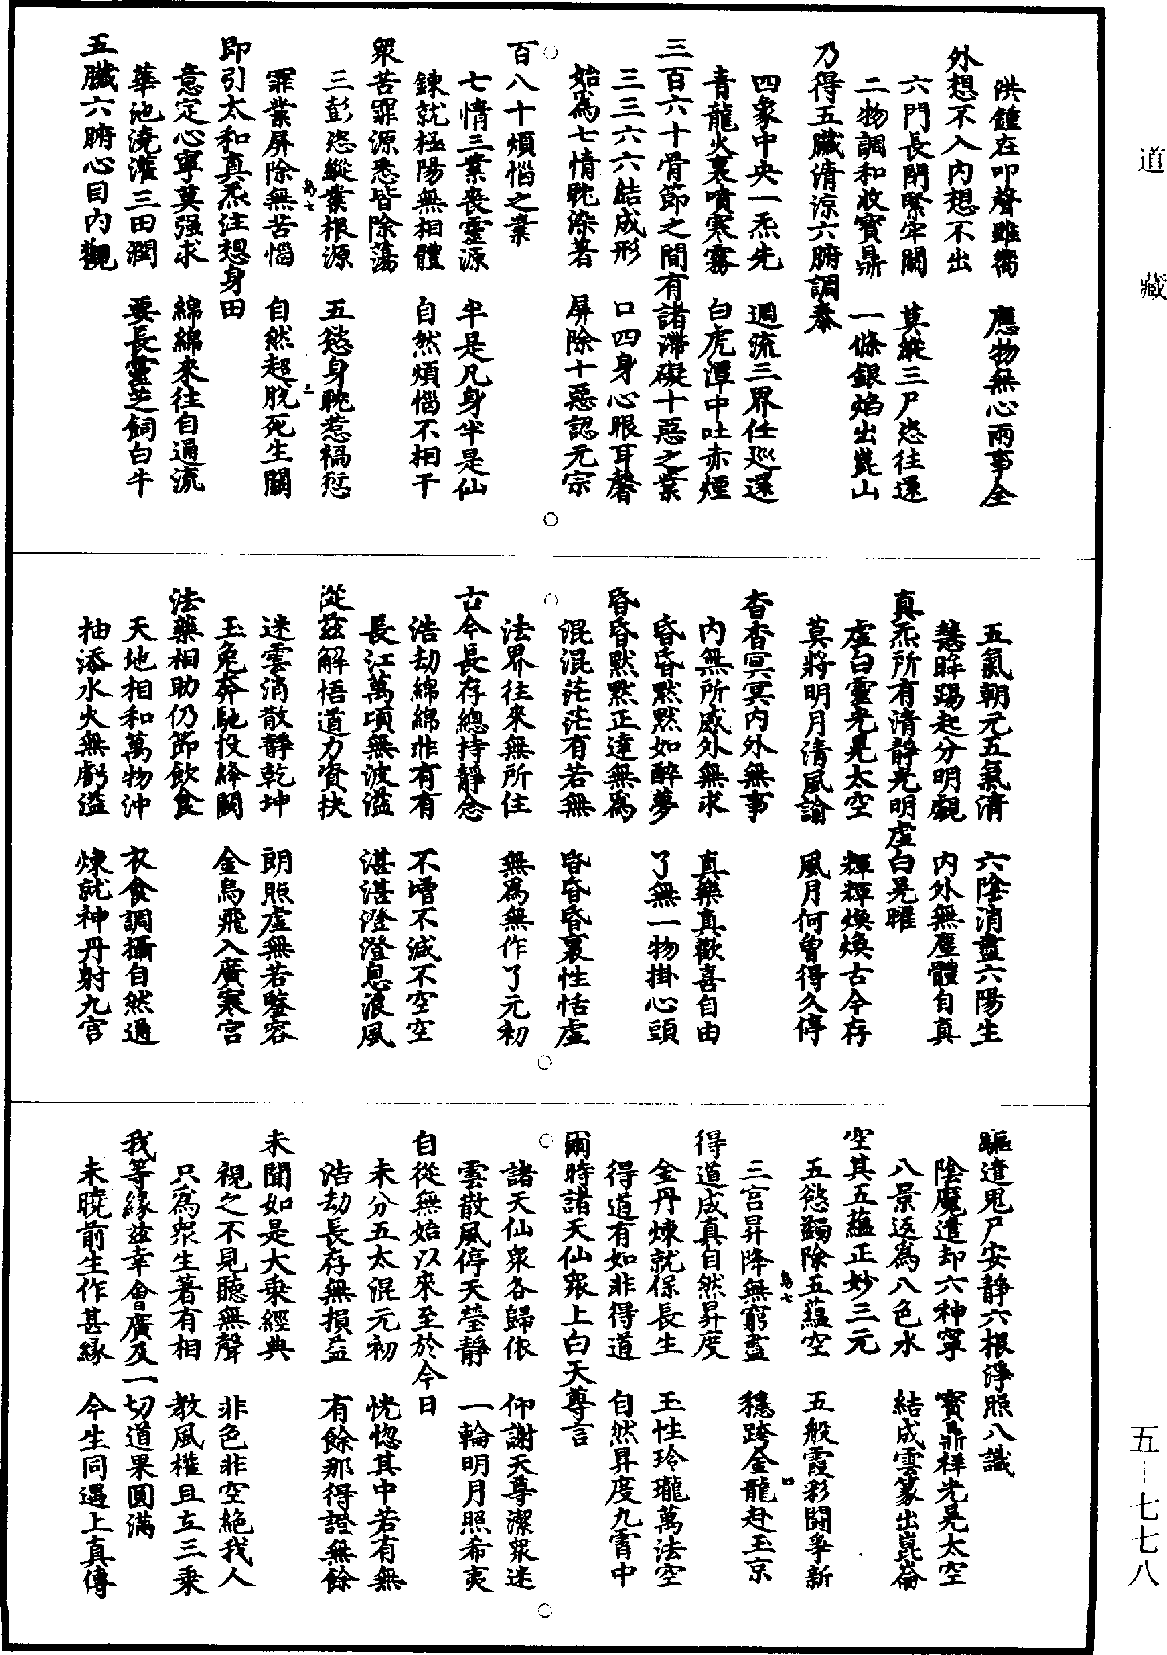 道藏
洪鍾在叩聲雖獨　應物無心兩事全
外想不入內想不出
六門長閉緊牢關　莫縱三尸恣往還
二物調和收寶鼎　一條銀焰出崑山
乃得五臟清涼六腑調泰
四象中央一炁先　週流三界任巡還
青龍火裏噴寒霧　白虎潭中吐赤煙
三百六十骨節之間有諸滯礙十惡之業
三三六六結成形　口四身心眼耳聲
始為七情躭染著　屏除十惡認元宗
百八十煩惱之業
七情三業喪靈源　半是凡身半是仙
鍊就極陽無相體　自然煩惱不相干
眾苦罪源悉皆除蕩
三彭恣縱業根源　五慾身躭惹禍愆
罪業屏除無苦惱　自然超脫死生關
即引太和真炁注想身田
意定心寧莫强求　綿綿來往自通流
華池澆灌三田潤　要長靈芝飼白牛
五臟六腑心目內觀
五氣朝元五氣清　六陰消盡六陽生
慧眸踢起分明覷　內外無塵體自真
真炁所有清靜光明虛白晃曜
虛白靈光晃太空　輝輝煥煥古今存
莫將明月清風論　風月何曾得久停
杳杳冥冥內外無事
內無所感外無求　真樂真歡喜自由
昏昏默默如醉夢　了無一物掛心頭
昏昏默默正達無為
混混茫茫有若無　昏昏昏裏性恬虛
法界往來無所住　無為無作了元初
古今長存總持靜念
浩劫綿綿非有有　不增不減不空空
長江萬頃無波溢　湛湛澄澄息浪風
從茲解悟道力資扶
迷雲消散靜乾坤　朗照虛無若鑒容
玉兔奔馳投絳闕　金烏飛入廣寒宮
法藥相助仍節飲食
天地相和萬物沖　衣食調攝自然通
抽添水火無虧溢　煉就神丹射九宮
驅遣鬼尸安靜六根淨照八識
陰魔遣却六神寧　寶鼎祥光晃太空
八景返為八色水　結成雲篆出崑崙
空其五蘊正妙三元
五慾蠲除五蘊空　五般霞彩鬪爭新
三宮昇降無窮盡　穩跨金龍赴玉京
得道成真自然昇度
金丹煉就保長生　玉性玲瓏萬法空
得道有如非得道　自然昇度九霄中
爾時諸天仙眾上白天尊言
諸天仙眾各歸依　仰謝天尊潔眾迷
雲散風停天瑩靜　一輪明月照希夷
自從無始以來至於今日
未分五太混元初　恍惚其中若有無
浩劫長存無損益　有餘那得證無餘
未聞如是大乘經典
視之不見聽無聲　非色非空絕我人
只為眾生著有相　教風權且立三乘
我等緣茲幸會廣及一切道果圓滿
未曉前生作甚緣　今生同遇上真傳
五—七七八